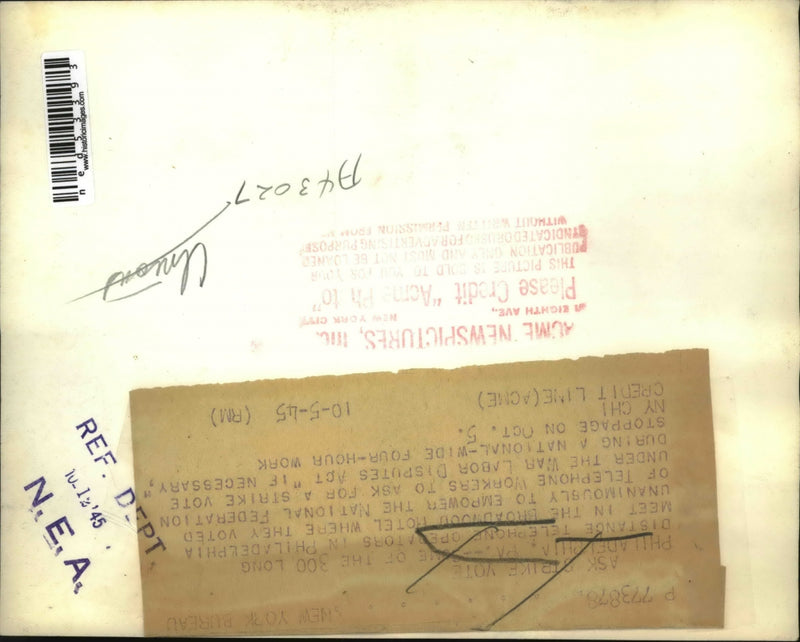 ned53393
www.historicimages.com
A43027
Unions
ACME NEWSPICTURES, Inc.
EIGHTH AVE., NEW YORK CITY
Please Credit "Acme Ph to"
THIS PICTURE IS SOLD TO YOU FOR YOUR
PUBLICATION ONLY AND MUST NOT BE LOANED
SYNDICATED OR USED FOR ADVERTISING PURPOSE
WITHOUT WRITTEN PERMISSION FROM
REF. DEPT
10-12-45
N.E.A.
P 773878
NEW YORK BUREAU
ASK STRIKE VOTE
PHILADELPHIA, PA. OF THE 300 LONG
DISTANCE TELEPHONE OPERATORS IN PHILADELPHIA
MEET IN THE BROADWOOD HOTEL WHERE THEY VOTED
UNANIMOUSLY TO EMPOWER THE NATIONAL FEDERATION
OF TELEPHONE WORKERS TO ASK FOR A STRIKE VOTE
UNDER THE WAR LABOR DISPUTES ACT "IF NECESSARY",
DURING A NATIONAL-WIDE FOUR-HOUR WORK
STOPPAGE ON OCT. 5.
NY CHI
CREDIT LINE (ACME) 10-5-45 (RM)